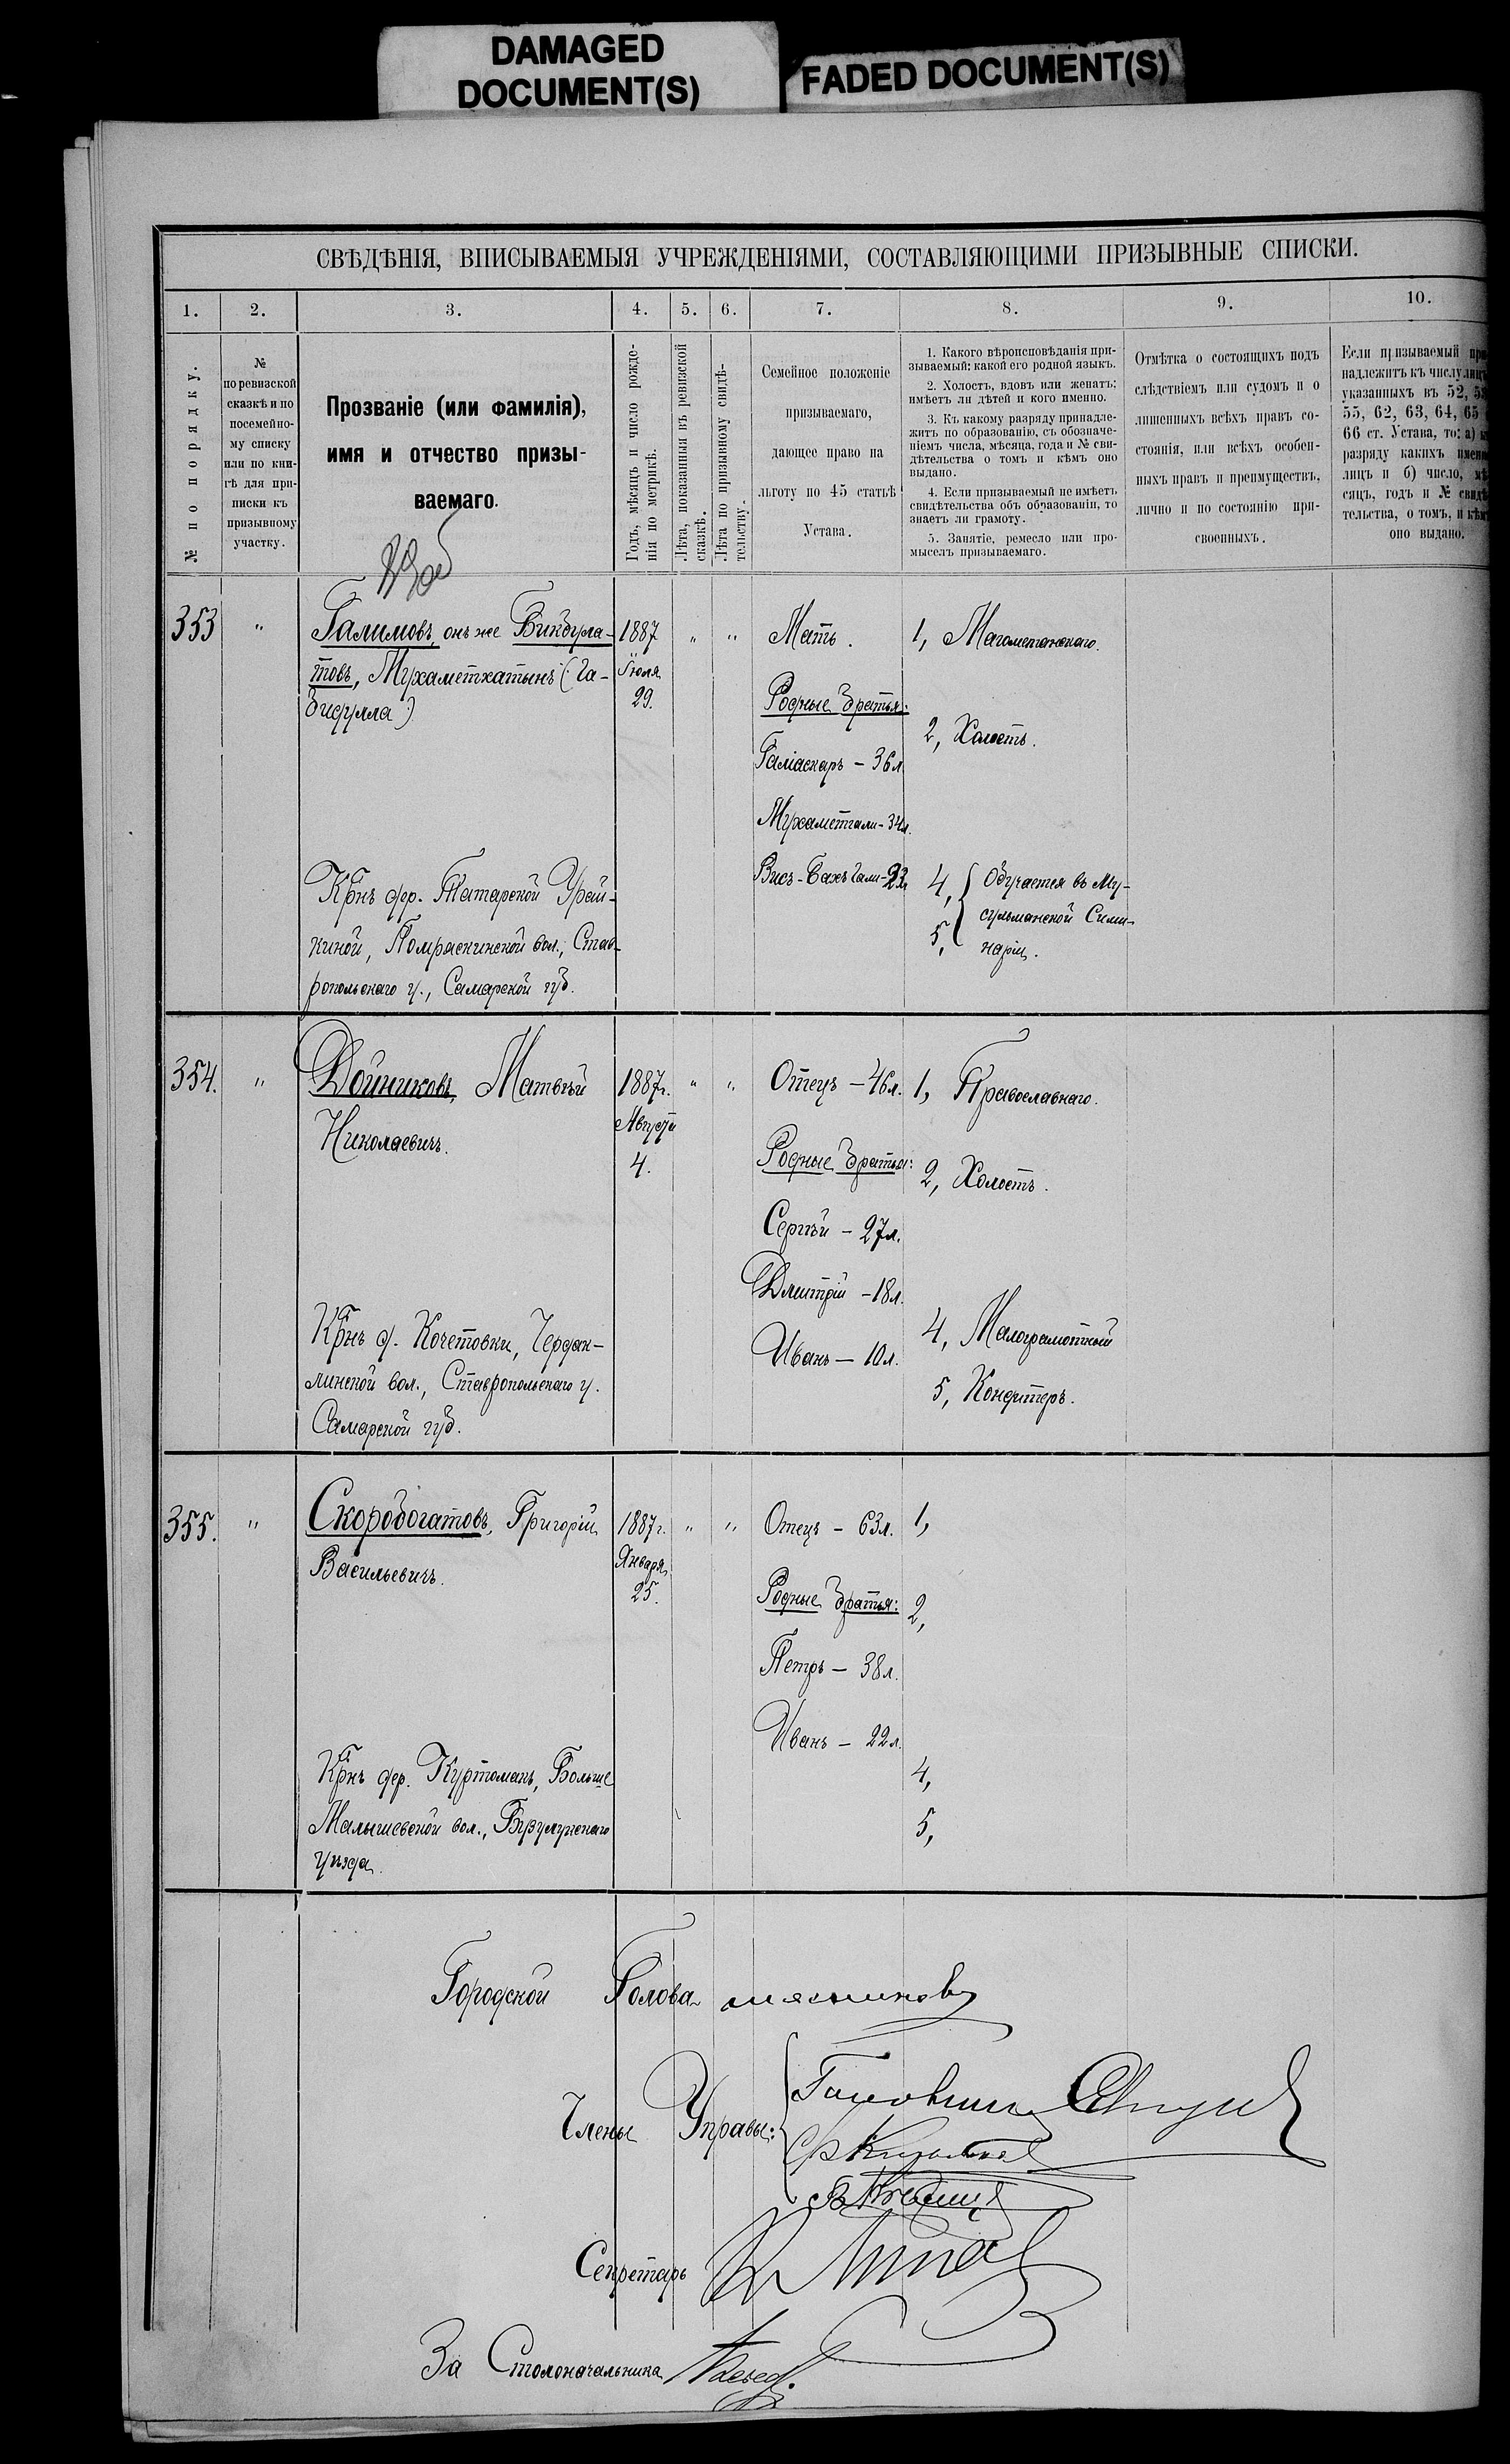 DAMAGED
DOCUMENT(S)
FADED DOCUMENT(S)
СВѢДѢНІЯ, ВПИСЫВАЕМЫЯ УЧРЕЖДЕНІЯМИ, СОСТАВЛЯЮЩИМИ ПРИЗЫВНЫЕ СПИСКИ.
1. 2. 3. 4. 5. 6. 7. 8. 9. 10.
№ по порядку.
№
по ревизской
сказкѣ и по
посемейно-
му списку
или по кни-
гѣ для при-
писки къ
призывному
участку.
Прозваніе (или фамилія),
имя и отчество призы-
ваемаго.
Годъ, мѣсяцъ и число рожде-
нія по метрикѣ.
Лѣта, показанныя въ ревизской
сказкѣ.
Лѣта по призывному свидѣ-
тельству.
Семейное положеніе
призываемаго,
дающее право на
льготу по 45 статьѣ
Устава.
1. Какого вѣроисповѣданія при-
зываемый: какой его родной языкъ.
2. Холостъ, вдовъ или женатъ:
имѣетъ ли дѣтей и кого именно.
3. Къ какому разряду принадле-
житъ по образованію, съ обозначе-
ніемъ числа, мѣсяца, года и № сви-
дѣтельства о томъ и кѣмъ оно
выдано.
4. Если призываемый не имѣетъ
свидѣтельства объ образованіи, то
знаетъ ли грамоту.
5. Занятіе, ремесло или про-
мыселъ призываемаго.
Отмѣтка о состоящихъ подъ
слѣдствіемъ или судомъ и о
лишенныхъ всѣхъ правъ со-
стоянія, или всѣхъ особен-
ныхъ правъ и преимуществъ,
лично и по состоянію при-
своенныхъ.
Если призываемый
надлежитъ къ числу
указанныхъ въ 52,
55, 62, 63, 64, 65
66 ст. Устава, то: а)
разряду какихъ
лицъ и б) число, мѣ
сяцъ, годъ и №
тельства, о томъ, и
оно выдано.
353 " Галимовъ, онъ же Бикбула-
товъ, Мухаметхатынъ (Га-
бидулла)
Крнъ дер. Татарской Урай-
киной, Помряскинской вол., Став-
ропольскаго у., Самарской губ.
1887
Іюля
29.
" "
Мать.
Родные братья:
Галіаскаръ – 36 л.
Мухаметгали – 34 л.
1, Магометанскаго.
2, Холостъ.
4,
5,
Обучается въ Му-
сульманской Семи-
наріи.
354. " Дойниковъ, Матвѣй
Николаевичъ.
Крнъ д. Кочетовки, Чердак-
линской вол., Ставропольскаго у.
Самарской губ.
1887 г.
Августа
4.
" "
Отецъ – 46 л.
Родные братья:
Сергѣй – 27 л.
Дмитрій – 18 л.
Иванъ – 10 л.
1, Православнаго.
2, Холостъ.
4, Малограмотный
5, Кондитеръ.
355. " Скоробогатовъ, Григорій
Васильевичъ.
Крнъ дер. Куртоманъ, Больше
Малышевской вол., Бузулукскаго
уѣзда.
1887 г.
Января
25.
" "
Отецъ – 63 л.
Родные братья:
Петръ – 38 л.
Иванъ – 22 л.
1,
2,
4,
5,
Городской Голова мясниковъ
Члены Управы:
Секретарь
За Столоначальника